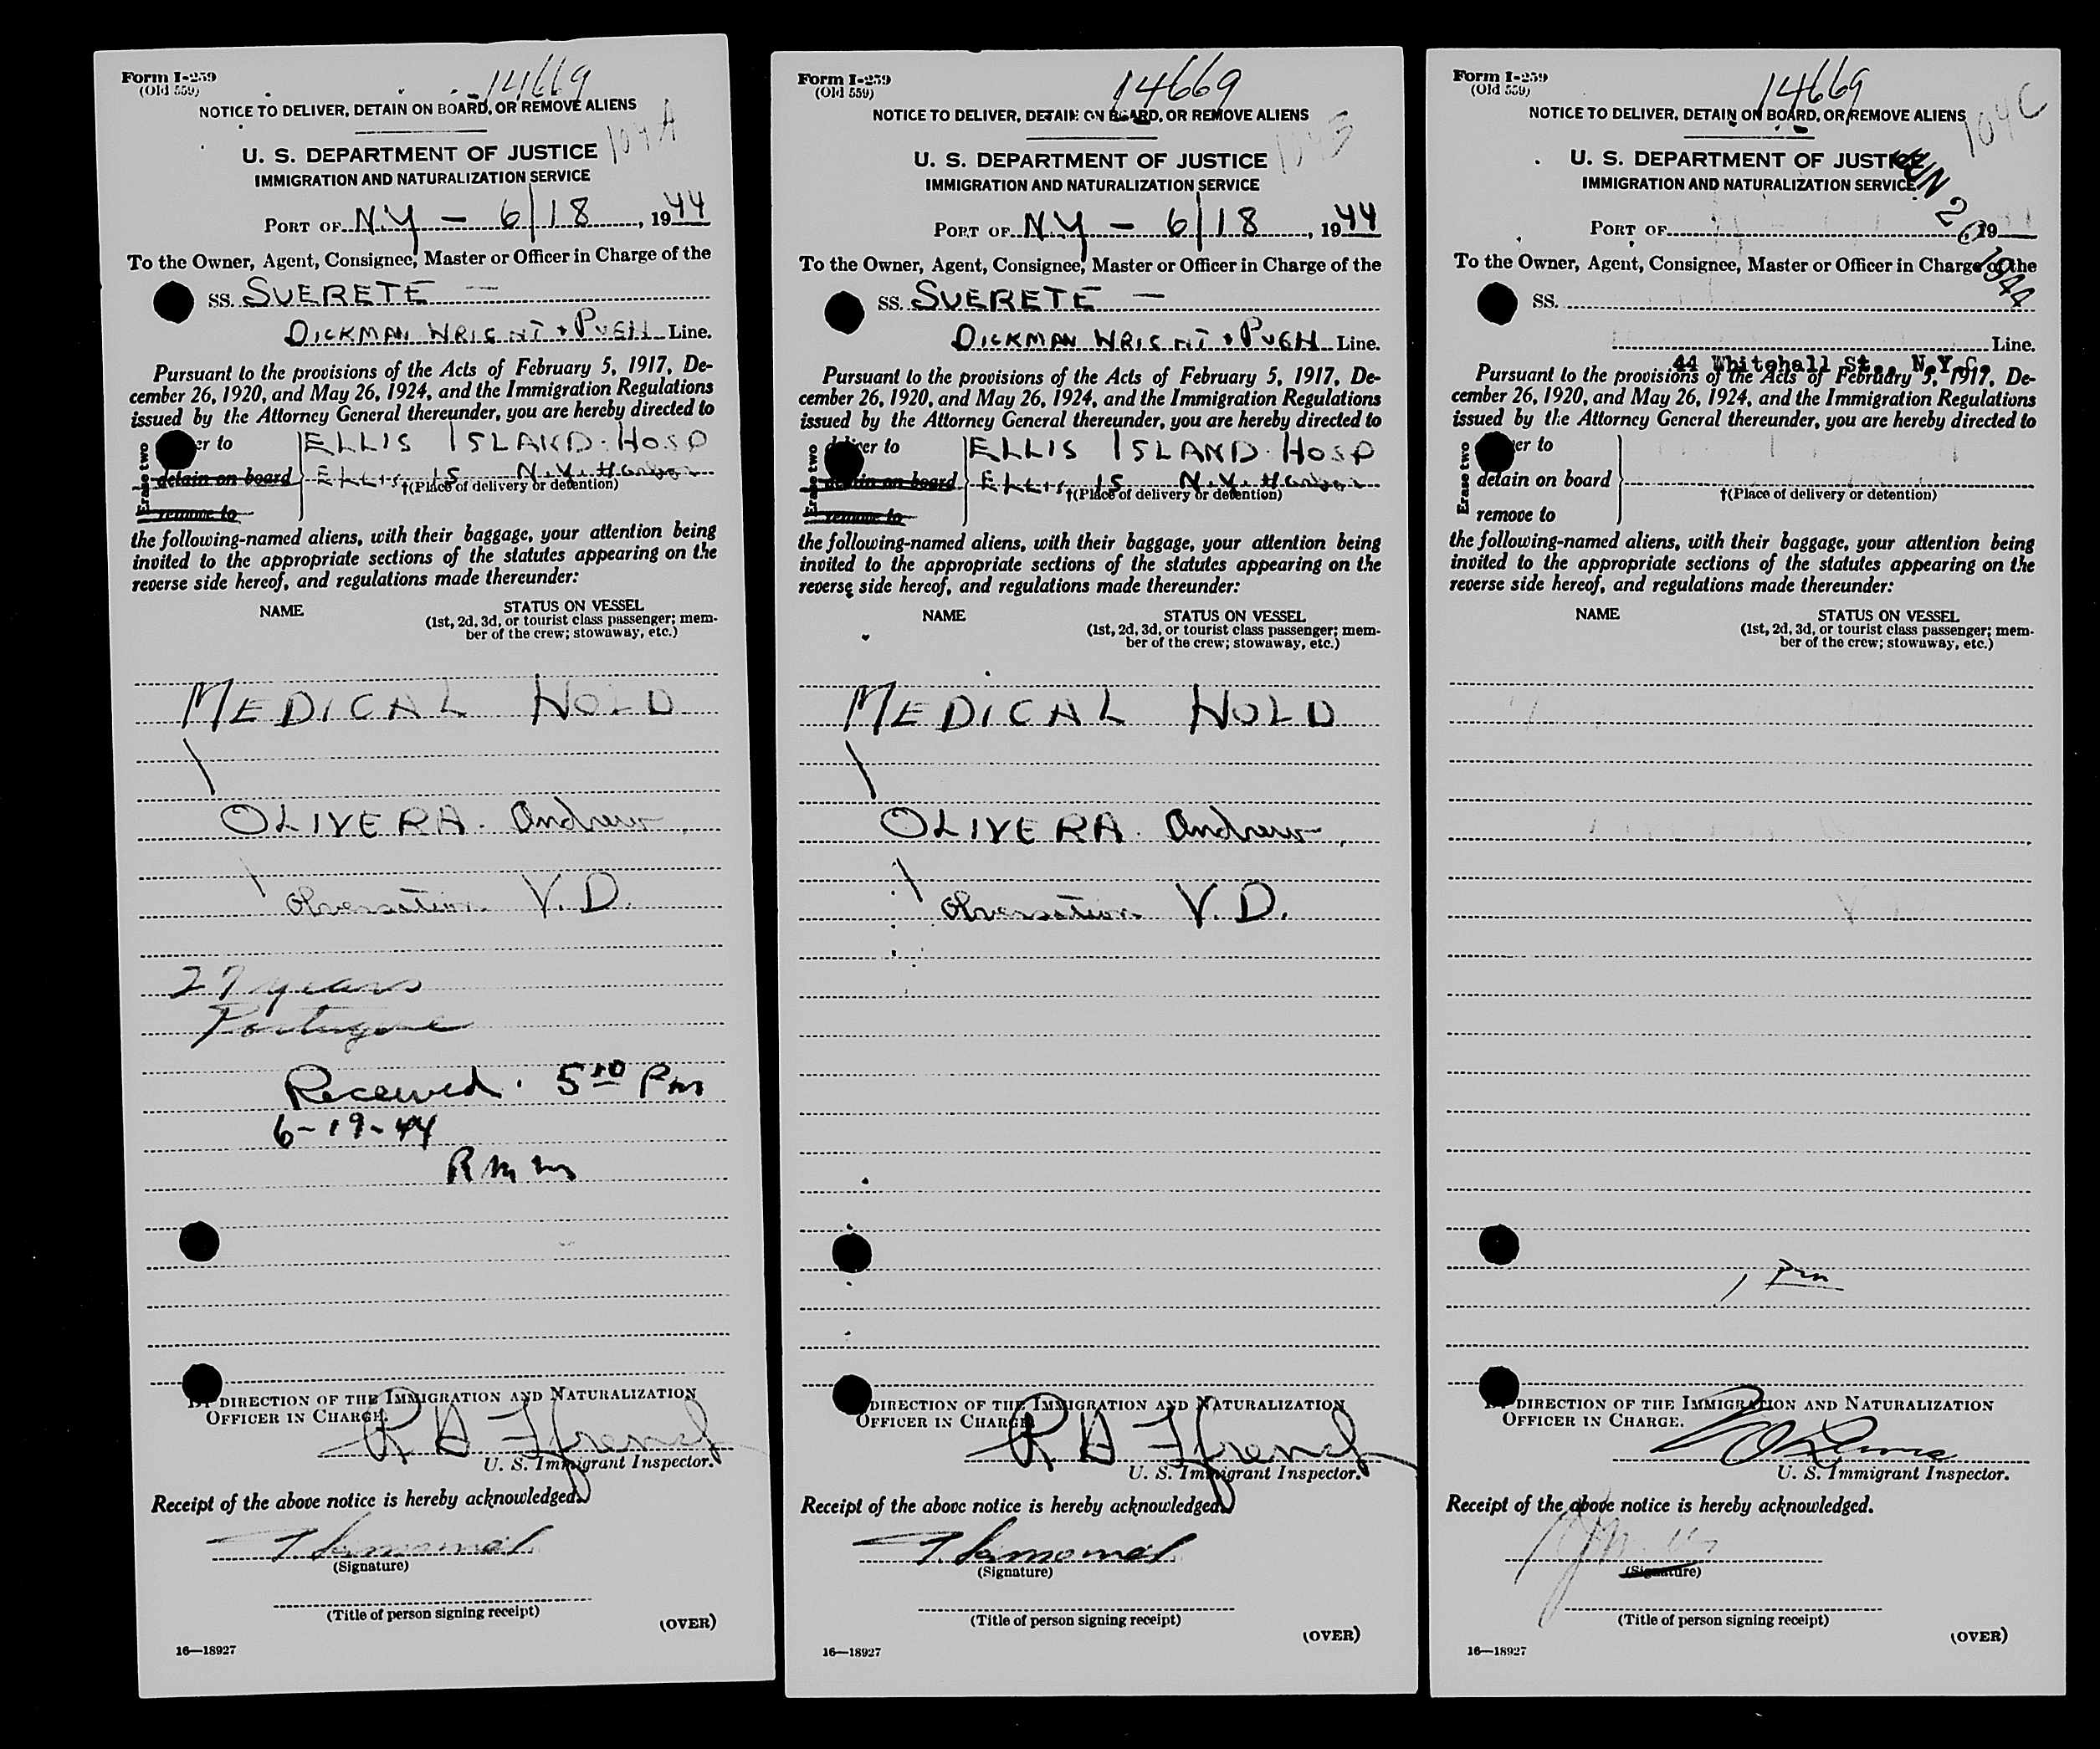 Form I-259
(Old 559)
14669
NOTICE TO DELIVER, DETAIN ON BOARD, OR REMOVE ALIENS
104A
U. S. DEPARTMENT OF JUSTICE
IMMIGRATION AND NATURALIZATION SERVICE
PORT OF N.Y - 6/18, 1944
To the Owner, Agent, Consignee, Master or Officer in Charge of the
SS. SUERETE -
DICKMAN WRIGHT + PUGH Line.
Pursuant to the provisions of the Acts of February 5, 1917, De-
cember 26, 1920, and May 26, 1924, and the Immigration Regulations
issued by the Attorney General thereunder, you are hereby directed to
er to ELLIS ISLAND. HOSP
Erase two
detain on board ELLIS IS N.Y. Harbor
†(Place of delivery or detention)
remove to
the following-named aliens, with their baggage, your attention being
invited to the appropriate sections of the statutes appearing on the
reverse side hereof, and regulations made thereunder:
NAME STATUS ON VESSEL
(1st, 2d, 3d, or tourist class passenger; mem-
ber of the crew; stowaway, etc.)
MEDICAL HOLD
OLIVERA. Andrew
Observation V.D.
29 years
Portugese
Received. 5 10 Pm
6-19-44
R m m
DIRECTION OF THE IMMIGRATION AND NATURALIZATION
OFFICER IN CHARGE.
R D Ffrench
U. S. Immigrant Inspector.
Receipt of the above notice is hereby acknowledged.
(Signature)
(Title of person signing receipt)
(OVER)
16—18927
Form I-259
(Old 559)
14669
NOTICE TO DELIVER, DETAIN ON BOARD, OR REMOVE ALIENS
104B
U. S. DEPARTMENT OF JUSTICE
IMMIGRATION AND NATURALIZATION SERVICE
PORT OF N.Y - 6/18, 1944
To the Owner, Agent, Consignee, Master or Officer in Charge of the
SS. SUERETE -
DICKMAN WRIGHT + PUGH Line.
Pursuant to the provisions of the Acts of February 5, 1917, De-
cember 26, 1920, and May 26, 1924, and the Immigration Regulations
issued by the Attorney General thereunder, you are hereby directed to
deliver to ELLIS ISLAND. HOSP
Erase two
detain on board ELLIS IS N.Y. Harbor
†(Place of delivery or detention)
remove to
the following-named aliens, with their baggage, your attention being
invited to the appropriate sections of the statutes appearing on the
reverse side hereof, and regulations made thereunder:
NAME STATUS ON VESSEL
(1st, 2d, 3d, or tourist class passenger; mem-
ber of the crew; stowaway, etc.)
MEDICAL HOLD
OLIVERA. Andrew
Observation V.D.
DIRECTION OF THE IMMIGRATION AND NATURALIZATION
OFFICER IN CHARGE
R D Ffrench
U. S. Immigrant Inspector.
Receipt of the above notice is hereby acknowledged.
(Signature)
(Title of person signing receipt)
(OVER)
16—18927
Form I-259
(Old 559)
14669
NOTICE TO DELIVER, DETAIN ON BOARD, OR REMOVE ALIENS
104C
U. S. DEPARTMENT OF JUSTICE
IMMIGRATION AND NATURALIZATION SERVICE
JUN 26 1944
PORT OF , 19
To the Owner, Agent, Consignee, Master or Officer in Charge of the
SS.
Line.
44 Whitehall St., N.Y.C.
Pursuant to the provisions of the Acts of February 5, 1917, De-
cember 26, 1920, and May 26, 1924, and the Immigration Regulations
issued by the Attorney General thereunder, you are hereby directed to
er to
Erase two
detain on board
†(Place of delivery or detention)
remove to
the following-named aliens, with their baggage, your attention being
invited to the appropriate sections of the statutes appearing on the
reverse side hereof, and regulations made thereunder:
NAME STATUS ON VESSEL
(1st, 2d, 3d, or tourist class passenger; mem-
ber of the crew; stowaway, etc.)
V
1 Pm
DIRECTION OF THE IMMIGRATION AND NATURALIZATION
OFFICER IN CHARGE.
U. S. Immigrant Inspector.
Receipt of the above notice is hereby acknowledged.
(Signature)
(Title of person signing receipt)
(OVER)
16—18927